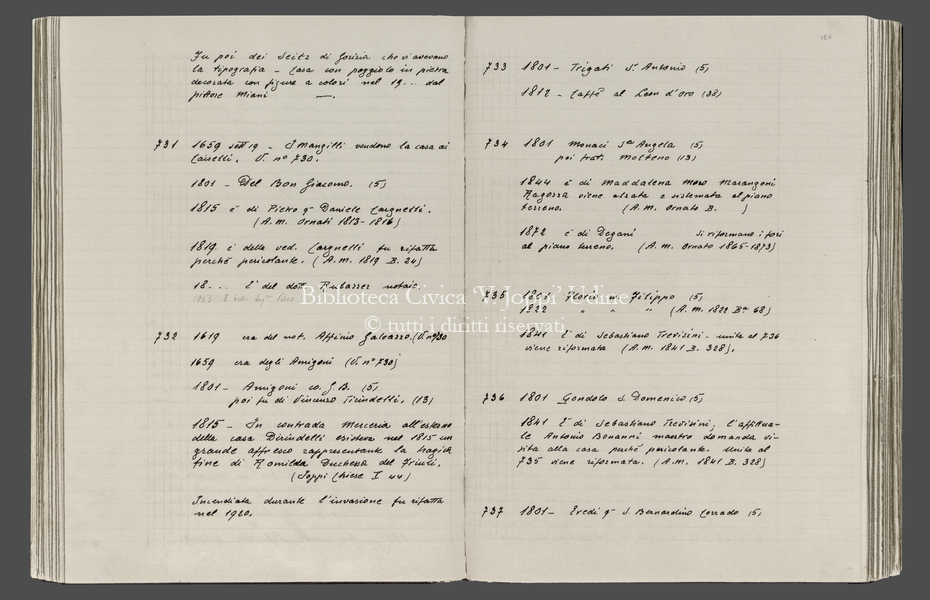 Fu poi dei Seitz di Gorizia che vi avevano
la tipografia - Casa con poggiolo in pietra
decorata con figure a colori nel 19... dal
pittore Miani —.
731 1659 sett 19 - I Mangilli vendono la casa ai
Caiselli. V. n° 730.
1801 - Del Bon Giacomo. (5)
1815 è di Pietro q. Daniele Cargnelli.
(A.M. Ornati 1813-1816)
1819 è della ved. Cargnelli fu rifatta
perchè pericolante. (A.M. 1819 B. 24)
18... È del dott. Rubazzer notaio.
1953
732 1619 era del not. Affinio Galeazzo. (V. n° 730
1659 era degli Amigoni (V. n° 730)
1801 - Amigoni co. G.B. (5)
poi fu di Vincenzo Tirindelli. (13)
1815 - In contrada Merceria all'esterno
della casa Dirindelli esisteva nel 1815 un
grande affresco rappresentante la tragica
fine di Romilda Duchessa del Friuli.
(Joppi Chiese I 44)
Incendiata durante l'invasione fu rifatta
nel 1920.
186
733 1801 - Trigati S. Antonio (5)
1812 - Caffè al Leon d'oro (38)
734 1801 Monaci Sa Angela (5)
poi frat. Molteno (13)
1844 è di Maddalena Moro Marangoni
Ragozza viene alzata e sistemata al piano
terreno. (A.M. Ornato B. )
1872 è di Degani si riformano i fori
al piano terreno. (A.M. Ornato 1865-1873)
735 1801 Florio co. Filippo (5)
1822 " " " (A.M. 1822 Bа 68)
1841 È di Sebastiano Trevisini. unita al 736
viene riformata (A.M. 1841 B. 328).
736 1801 Gondolo S. Domenico (5)
1841 È di Sebastiano Trevisini; l'affittua-
le Antonio Bonanni maestro domanda vi-
sita alla casa perché pericolante. Unita al
735 viene riformata. (A.M. 1841 B. 328)
737 1801 - Eredi q. S. Bernardino Corrado (5)
Biblioteca Civica 'V. Joppi' Udine
© tutti i diritti riservati